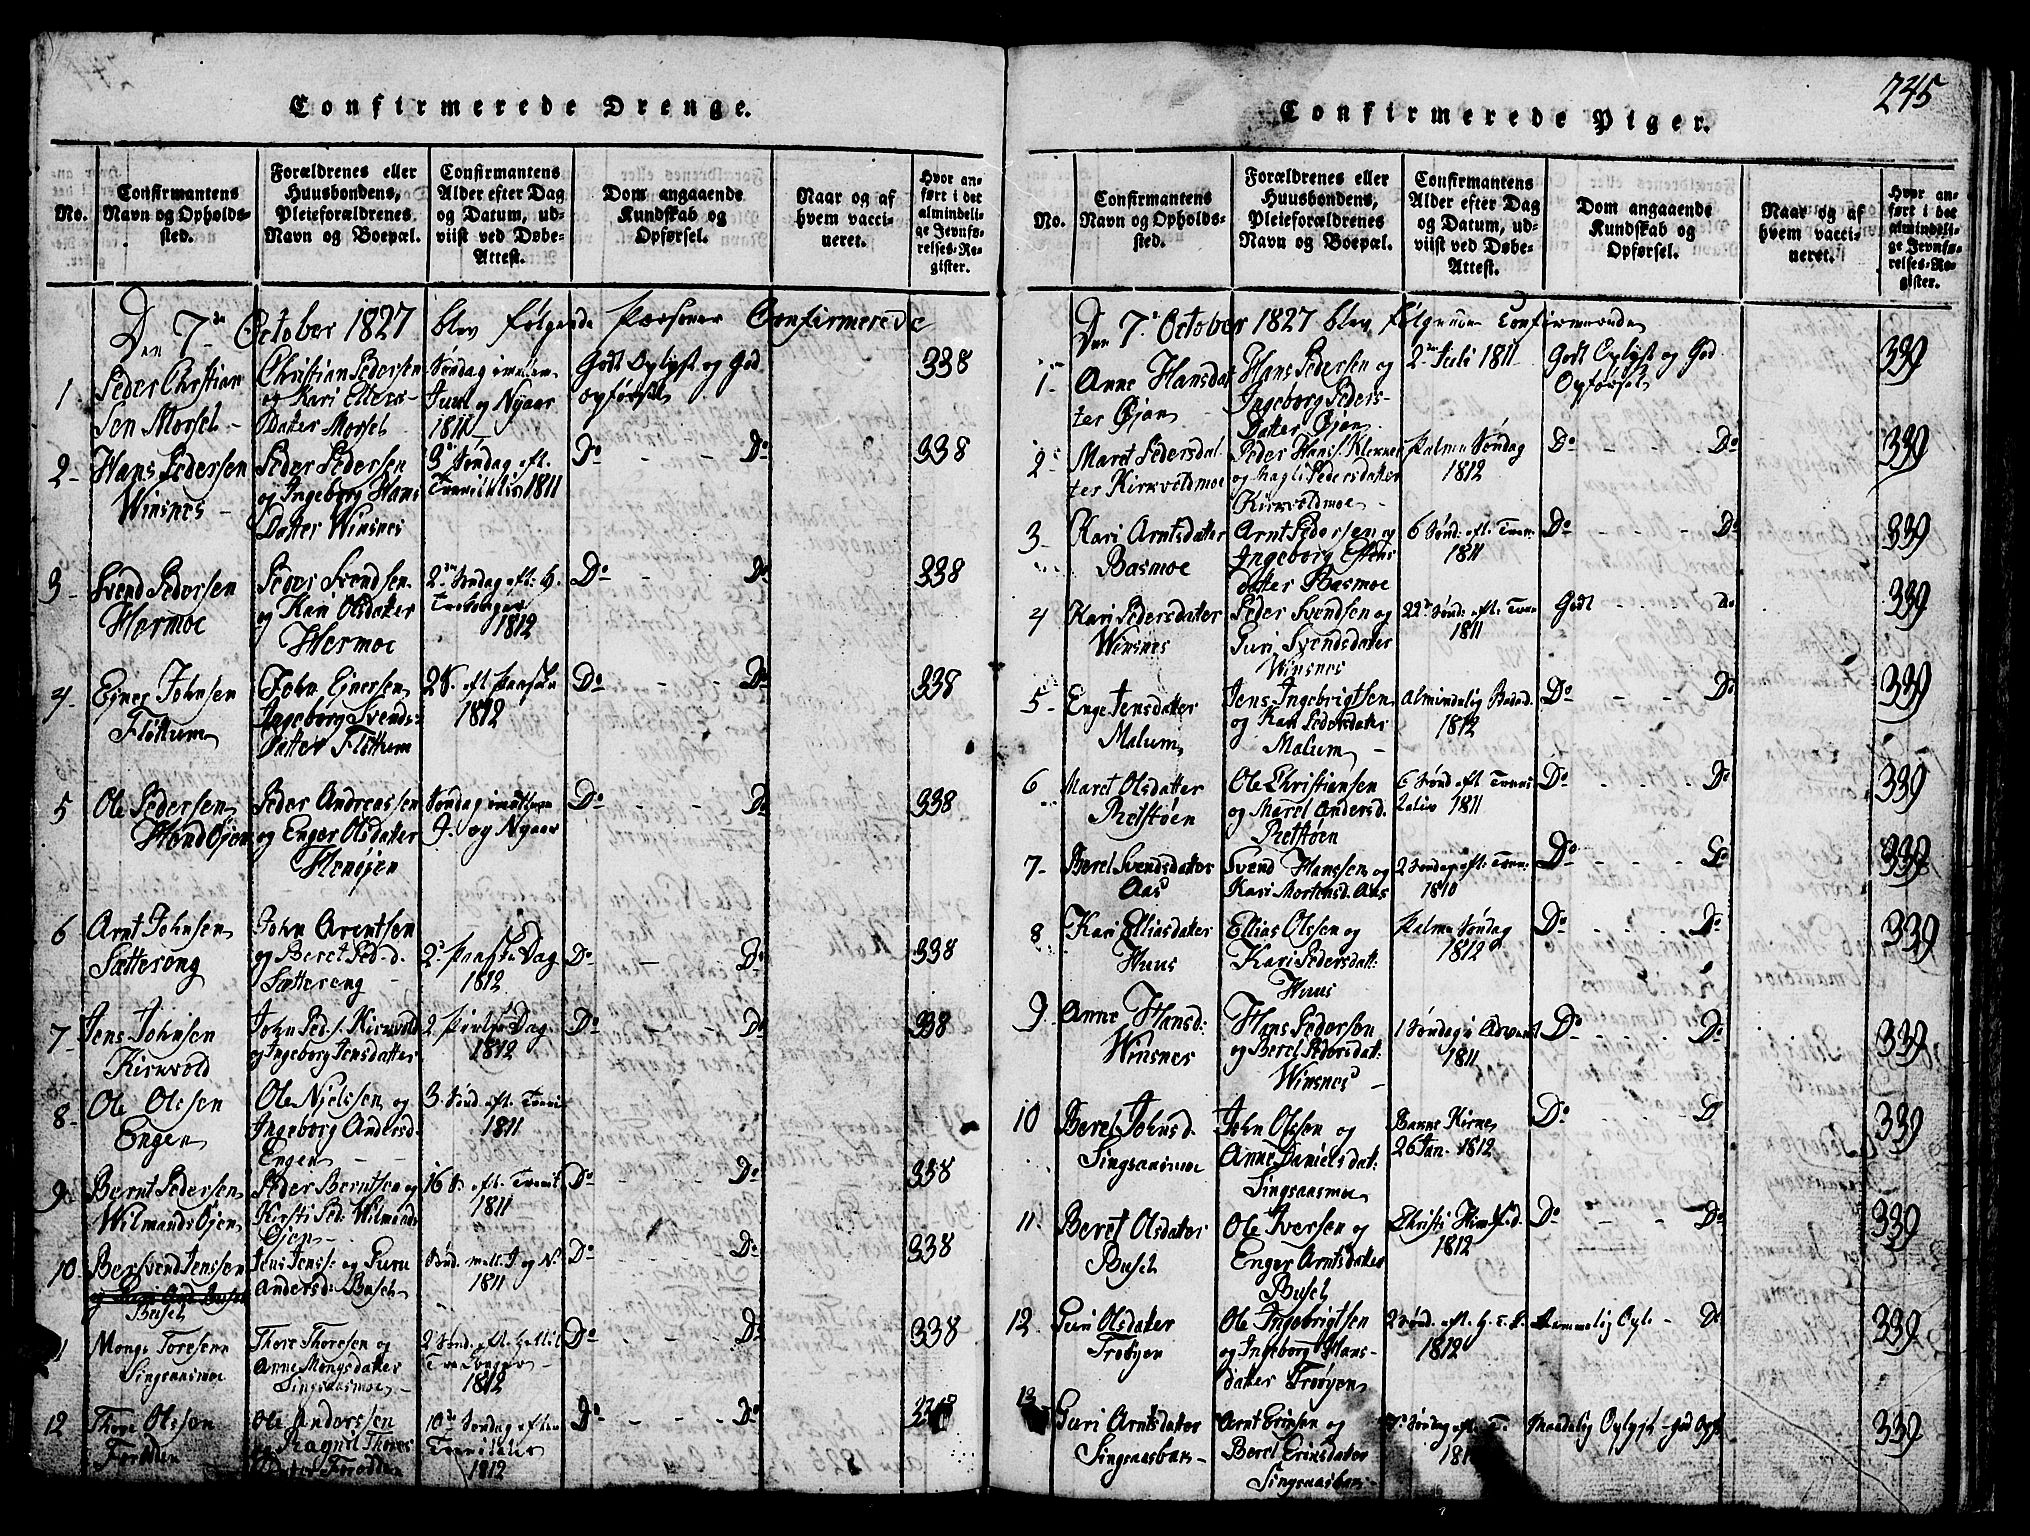 Confirmerede Drenge.
No.
Confirmantens
Navn og Opholds-
sted.
Forældrenes eller
Huusbondens,
Pleieforældrenes
Navn og Boepæl.
Confirmantens
Alder efter Dag
og Datum, ud-
viist ved Døbe-
Attest.
Dom angaaende
Kundskab og
Opførsel.
Naar og af
hvem vacci-
neret.
Hvor an-
ført i det
almindeli-
ge Jevnfø-
relses-Re-
gister.
Den 7de October 1827 blev følgende Personer Confirmerede
1
Peder Christian
Sen Morsel -
Christian Pedersen
og Kari
Datter Morsel
Søndag imellem
Juul og Nyaar
1811
Godt Oplyst og God
opførsel
338
2
Hans Pedersen
Winsnes -
Peder Pedersen
og Ingeborg Hans
Datter Winsnes
3de Søndag eft.
1811
Do - - Do
338
3
Svend Pedersen
Hermoe
Peder Svendsen
og Kari Olsdatter
Hermoe
2den Søndag eft. H.
1812
Do - - Do
338
4
Ejner Johnsen
Flottum
John Ejnersen
Ingeborg Svends-
Datter Flottum
2 S. eft. Paaske
1812
Do - - Do
338
5
Ole Pedersen
Peder Andreassen
og Enger Olsdatter
Søndag imellem
J. og Nyaar
Do - - Do
338
6
Arnt Johnsen
Sætterong
John Arentsen
og Beret Ped. d.
Sættereng
2 Paaske Dag
1812
Do - - Do
338
7
Jens Johnsen
Kirkvold
John Ped. s. Kirkvold
og Ingeborg Jensdatter
2 Pintse Dag
1812
Do - - Do
338
8
Ole Olssen
Engen
Ole Nielssen og
Ingeborg Andersd.
Engen - -
3 Sønd. eft. Trini
1811
9
Bernt Pedersen
Wilmands Øjen
Peder Berntsen og
Kirsti Ped: Wilmands
Øjen -
16 S. eft. Trinit.
1811
Do - - Do
338
10
Bersvend Jenssen
Busel
Jens Jenss: og Guru
Andersd: Busel
Sønd. mell. J. og N.
1811
Do - - Do
338
11
Mongs Toresen
Singsaasmoe
Thore Thoresen og
Anne Mongsdatter
Singsaasmoe -
2 Sønd. eft.
1812
Do - - Do
338
12
Thore Olsson
Forodden
Ole Anderssen
og Ragnil Thores
Datter Forodden
10de Søndag efter
Trinitatis
1812
Do - - Do
245
Confirmerede Piger.
No.
Confirmantens
Navn og Opholds-
sted.
Forældrenes eller
Huusbondens,
Pleieforældrenes
Navn og Boepæl.
Confirmantens
Alder efter Dag
og Datum, ud-
viist ved Døbe-
Attest.
Dom angaaende
Kundskab og
Opførsel.
Naar og af
hvem vacci-
neret.
Hvor an-
ført i det
almindeli-
ge Jevnfø-
relses-Re-
gister.
Den 7. October 1827 blev følgende Confirmerede
1
Anne Hansdat
ter Øjan
Hans Pedersen og
Ingeborg Peders-
Datter Øjan
2 Juli 1811
Godt Oplyst og God
Opførsel
339
2
Maret Pedersdat
ter Kirkvoldmoe
Peder Hans
Pedersdatter
Kirkvoldmoe -
Palme Søndag
1812
Do Do
339
3
Kari Arntsdatter
Basmoe
Arnt Pedersen og
Ingeborg
datter Basmoe
6 Sønd. eft. Trini
1811
Do - - - Do
339
4
Kari Pedersdatter
Winsnes
Peder Svendsen og
Guri Svendsdatter
Winsnes
22de Sønd. eft. Trin
1811
Godt - - - Do
339
5
Enge Jensdatter
Malum
Jens Ingebrigtsen
og Kari Pedersdatter
Malum -
Almindelig Beded.
1812
Do - - - Do
339
6
Maret Olsdatter
Retstøen
Ole Christiansen
og Maret Andersd.
Retstøen
6 Sønd eft Trini
1811
Do - - - Do
339
7
Beret Svendsdatter
Aas
Svend Hanssen og
Kari Mortensd. Aas
2 Søndag eft: Trin:
1810
Do - - - Do
339
8
Kari Elliasdatter
Huus
Ellias Olssen og
Kari Pedersdatt:
Huus
Palme Søndag
1812
Do - - - Do
339
9
Anne Hansd:
Winsnes
Hans Pedersen
og Beret Pedersdat:
Winsnes -
1 Søndag i Advent
1811
Do - - - Do
339
10
Beret Johnsd.
Singsaasmoe
John Olssen og
Anne Danielsdat:
Singsaasmoe
26 Jan. 1812
Do - - - Do
339
11
Beret Olsdatter
Busel
Ole Iversen og
Enger Arntsdatter
Busel
Christi Himf. d.
1812
Do - - - Do
339
12
Guri Olsdatter
Trøøyen
Ole Ingebrigtsen
og Ingeborg Hans-
datter Trøøyen
2 Sønd. eft. H.
1812
Do
339
13
Guri Arntsdatter
Singsaasbar
Arnt Ericsen og
Beret Ericsdatter
Singsaasbar
Søndag eft. T.
Maadelig Oplyst - God Opf
339